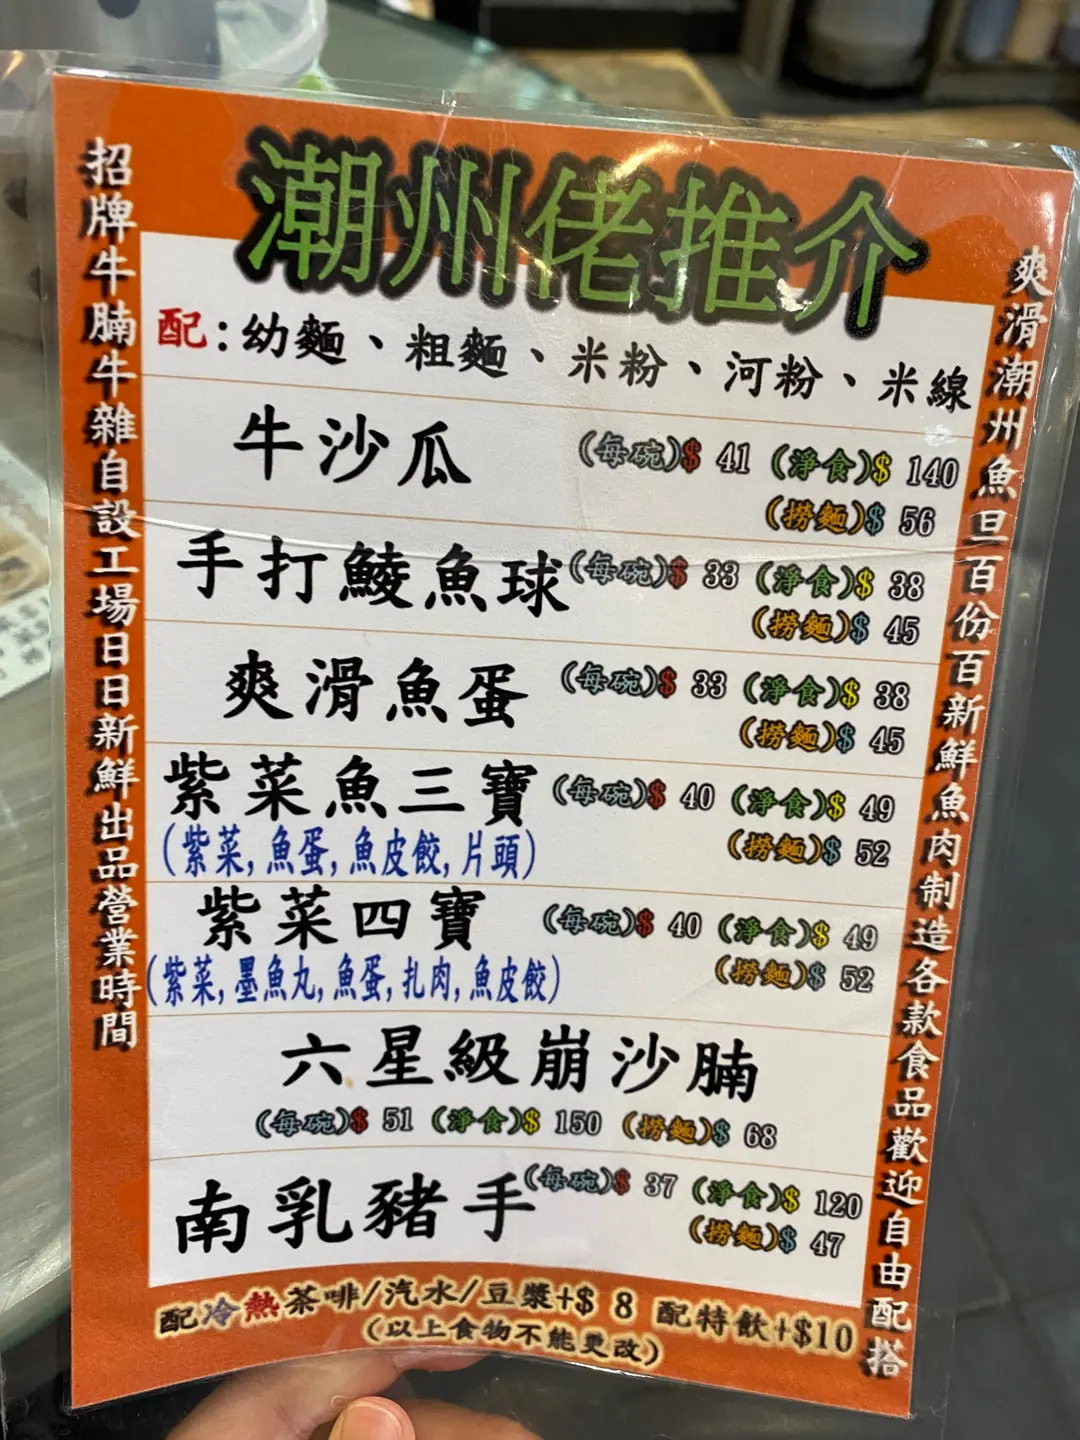 潮州佬推介
招牌牛腩牛雜自設工場日日新鮮出品營業時間
爽滑潮州魚旦百份百新鮮魚肉制造各款食品歡迎自由配搭
配:幼麵、粗麵、米粉、河粉、米線
牛沙瓜 (每碗)$ 41 (淨食)$ 140
(撈麵)$ 56
手打鯪魚球 (每碗)$ 33 (淨食)$ 38
(撈麵)$ 45
爽滑魚蛋 (每碗)$ 33 (淨食)$ 38
(撈麵)$ 45
紫菜魚三寶 (每碗)$ 40 (淨食)$ 49
(紫菜,魚蛋,魚皮餃,片頭) (撈麵)$ 52
紫菜四寶 (每碗)$ 40 (淨食)$ 49
(紫菜,墨魚丸,魚蛋,扎肉,魚皮餃) (撈麵)$ 52
六星級崩沙腩
(每碗)$ 51 (淨食)$ 150 (撈麵)$ 68
南乳豬手 (每碗)$ 37 (淨食)$ 120
(撈麵)$ 47
配冷熱茶啡/汽水/豆漿+$ 8 配特飲+$10
(以上食物不能更改)